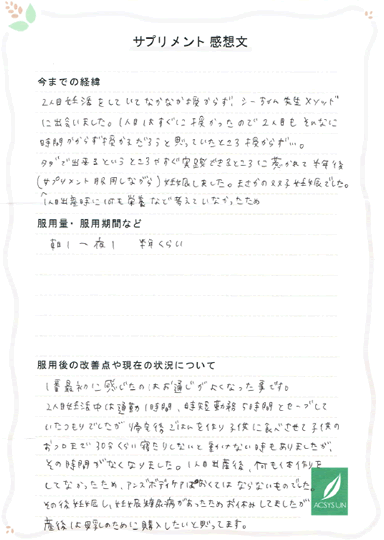 サプリメント 感想文
今までの経緯
2人目妊活をしていてなかなか授からず、シーちゃん先生メソッド
に出会いました。1人目はすぐに授かったので2人目もそんなに
時間かからず授かるだろうと思っていたところ授からず…。
が出来るというところやすぐ実践できるところに惹かれて半年後
(サプリメント服用しながら)妊娠しました。まさかの双子妊娠でした。
1人目出産時に何も栄養など考えていなかったため
服用量・服用期間など
朝1 〜 夜1 半年くらい
服用後の改善点や現在の状況について
1番最初に感じたのはお通じがよくなった事です。
2人目妊活中は通勤1時間、時短勤務5時間とセーブして
いたつもりでしたが帰宅後ごはんを作り子供に食べさせて子供の
おフロまで30分くらい寝たりしないと動けない時もありましたが、
その時間がなくなりました。1人目出産後、何も体作りを
してなかったため、アンズボディケアは ではならないものでした。
その後妊娠し、妊娠糖尿病があったためお休みしてましたが
産後は母乳のために購入したいと思ってます。
ACSYS LIN